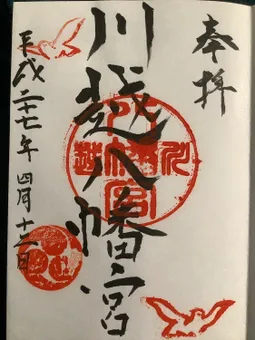 奉拝
川越八幡宮
平成二十七年四月十二日